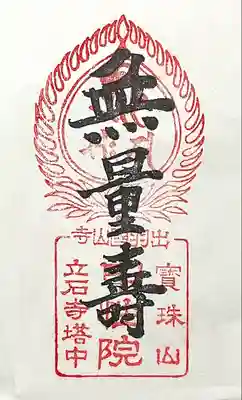 無量壽
出羽國山寺
寶珠山
院
立石寺塔中